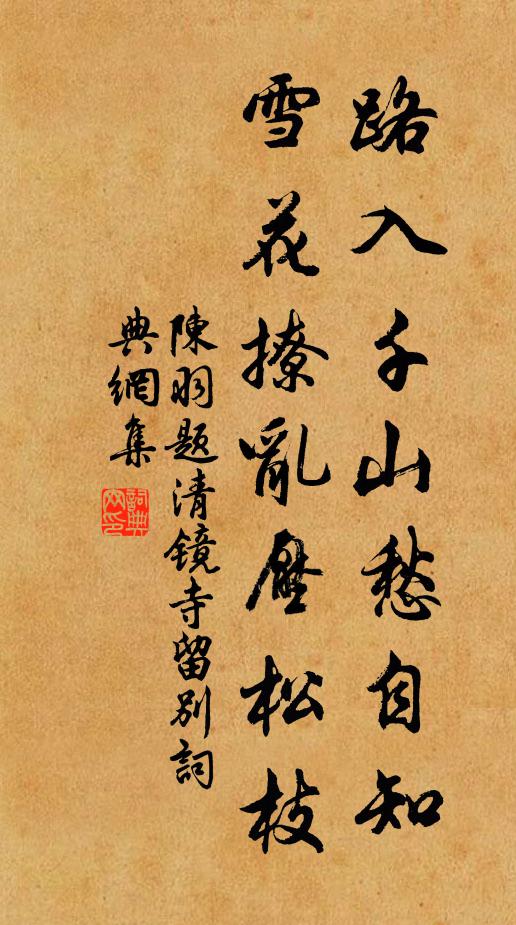 路入千山愁自知
雪花撩亂壓松枝
陳羽題清镜寺留別詞
典網集
詞典網印